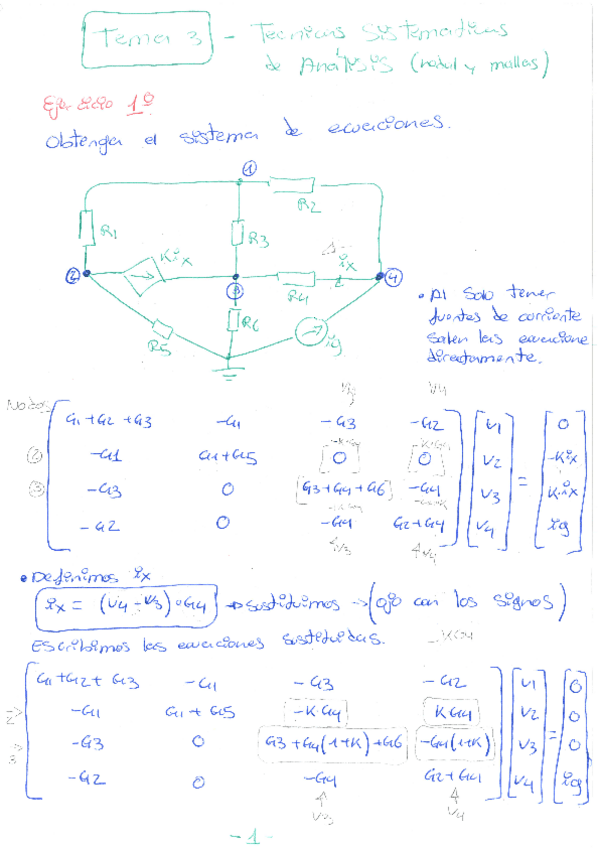 Tema 3 - Tecnicas Sistematicas
de Análisis (nodal y mallas)
Ejercicio 1º
Obtenga el sistema de ecuaciones.
1
R2
R1
R3
K·ix
ix
2
3
4
R4
R5
R6
ig
• Al solo tener
fuentes de corriente
salen las ecuaciones
directamente.
V3 V4
Nodos
G1+G2+G3 -G1 -G3 -G2 V1 0
-K·G4 K·G4
2 -G1 G1+G5 0 0 V2 -K·ix
3 -G3 0 G3+G4+G6 -G4 V3 = K·ix
-G2 0 -G4 G2+G4 V4 ig
V3 V4
• Definimos ix
ix = (V4 - V3)·G4 → sustituimos → (ojo con los signos)
Escribimos las ecuaciones sustituidas.
-KG4
G1+G2+G3 -G1 -G3 -G2 V1 0
2 -G1 G1+G5 -K·G4 KG4 V2 0
3 -G3 0 G3+G4(1+K)+G6 -G4(1+K) V3 = 0
-G2 0 -G4 G2+G4 V4 ig
V3 V4
-1-